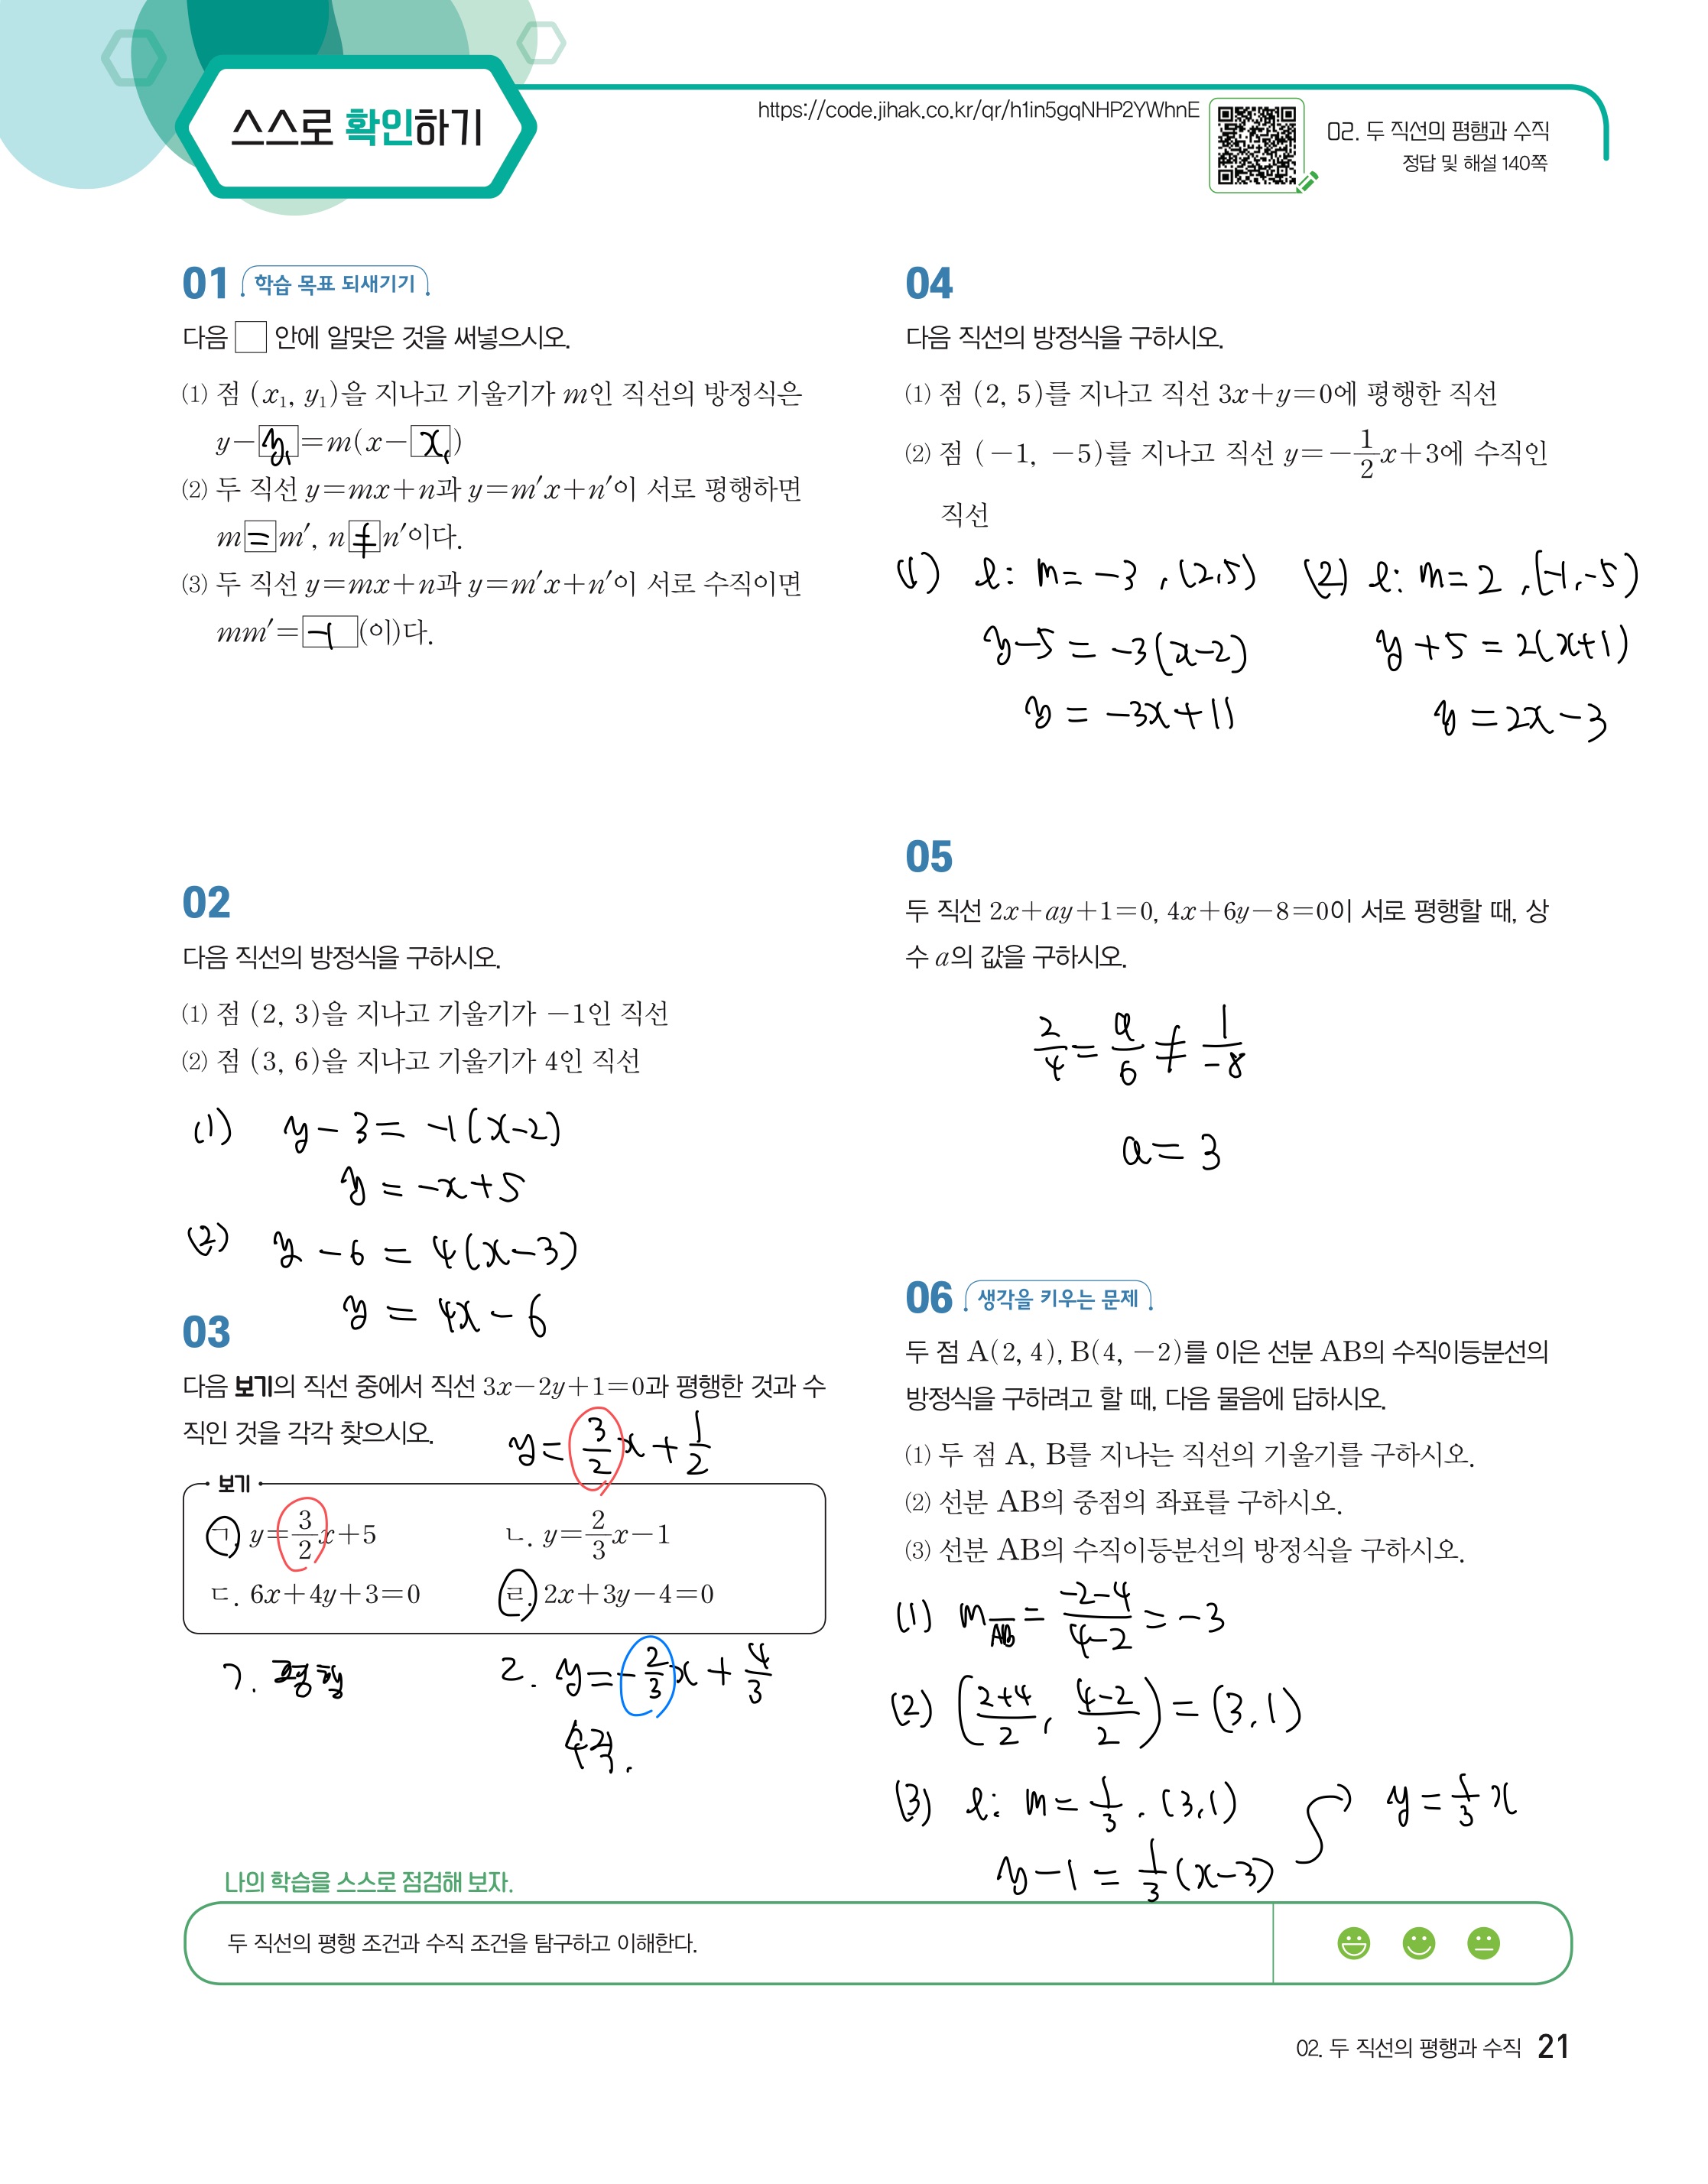 스스로 확인하기
https://code.jihak.co.kr/qr/h1in5gqNHP2YWhnE
02. 두 직선의 평행과 수직
정답 및 해설 140쪽
01 학습 목표 되새기기
다음 □ 안에 알맞은 것을 써넣으시오.
⑴ 점 (x₁, y₁)을 지나고 기울기가 m인 직선의 방정식은
y−y₁=m(x−x₁)
⑵ 두 직선 y=mx+n과 y=m′x+n′이 서로 평행하면
m=m′, n≠n′이다.
⑶ 두 직선 y=mx+n과 y=m′x+n′이 서로 수직이면
mm′=−1(이)다.
02
다음 직선의 방정식을 구하시오.
⑴ 점 (2, 3)을 지나고 기울기가 −1인 직선
⑵ 점 (3, 6)을 지나고 기울기가 4인 직선
(1) y−3=−1(x−2)
y=−x+5
(2) y−6=4(x−3)
y=4x−6
03
다음 보기의 직선 중에서 직선 3x−2y+1=0과 평행한 것과 수
직인 것을 각각 찾으시오.
y=3/2x+1/2
보기
ㄱ. y=3/2x+5 ㄴ. y=2/3x−1
ㄷ. 6x+4y+3=0 ㄹ. 2x+3y−4=0
ㄱ. 평행 ㄹ. y=−2/3x+4/3
수직.
04
다음 직선의 방정식을 구하시오.
⑴ 점 (2, 5)를 지나고 직선 3x+y=0에 평행한 직선
⑵ 점 (−1, −5)를 지나고 직선 y=−1/2x+3에 수직인
직선
(1) l: m=−3, (2,5) (2) l: m=2, (−1,−5)
y−5=−3(x−2) y+5=2(x+1)
y=−3x+11 y=2x−3
05
두 직선 2x+ay+1=0, 4x+6y−8=0이 서로 평행할 때, 상
수 a의 값을 구하시오.
2/4=a/6≠1/−8
a=3
06 생각을 키우는 문제
두 점 A(2, 4), B(4, −2)를 이은 선분 AB의 수직이등분선의
방정식을 구하려고 할 때, 다음 물음에 답하시오.
⑴ 두 점 A, B를 지나는 직선의 기울기를 구하시오.
⑵ 선분 AB의 중점의 좌표를 구하시오.
⑶ 선분 AB의 수직이등분선의 방정식을 구하시오.
(1) m_AB=(−2−4)/(4−2)=−3
(2) ((2+4)/2, (4−2)/2)=(3,1)
(3) l: m=1/3, (3,1) y=1/3x
y−1=1/3(x−3)
나의 학습을 스스로 점검해 보자.
두 직선의 평행 조건과 수직 조건을 탐구하고 이해한다.
02. 두 직선의 평행과 수직 21